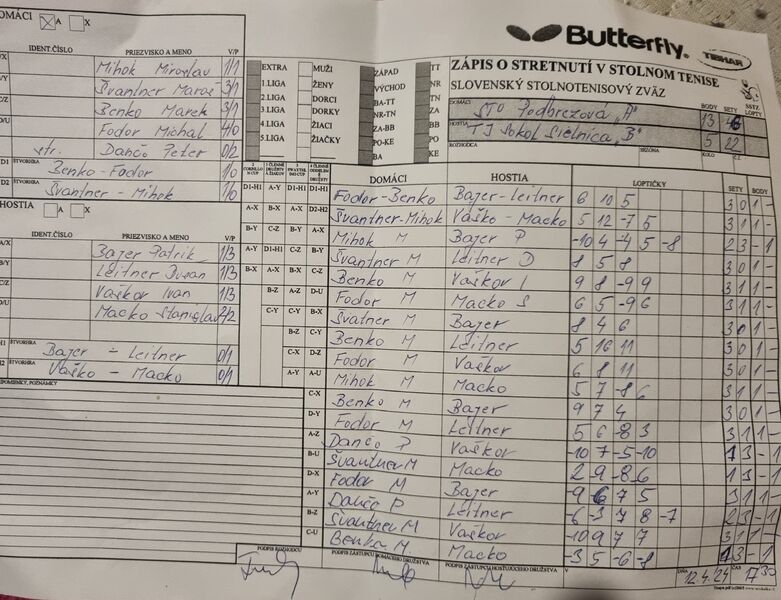 Butterfly
TIBHAR
ZÁPIS O STRETNUTÍ V STOLNOM TENISE
SLOVENSKÝ STOLNOTENISOVÝ ZVÄZ
DOMÁCI A X
IDENT.ČÍSLO PRIEZVISKO A MENO V/P
Mihok Miroslav 1/1
Švantner Maroš 3/1
Benko Marek 3/1
Fodor Michal 4/0
str. Dančo Peter 0/2
D1 ŠTVORHRA Benko - Fodor 1/0
D2 ŠTVORHRA Švantner - Mihok 1/0
HOSTIA A X
IDENT.ČÍSLO PRIEZVISKO A MENO V/P
Bajer Patrik 1/3
Leitner Dušan 1/3
Vaškov Ivan 1/3
Macko Stanislav 2/2
ŠTVORHRA Bajer - Leitner 0/1
ŠTVORHRA Vaško - Macko 0/1
PRIPOMIENKY, POZNÁMKY
EXTRA MUŽI ZÁPAD TT
1.LIGA ŽENY VÝCHOD NR
2.LIGA DORCI BA-TT TN
3.LIGA DORKY NR-TN ZA
4.LIGA ŽIACI ZA-BB BB
5.LIGA ŽIAČKY PO-KE PO
BA KE
DOMÁCI STO Podbrezová „A" BODY 13 SETY 46 LOPTY
HOSTIA TJ Sokol Sielnica „B" 5 22
ROZHODCA BRZDNA KOLO
DOMÁCI HOSTIA LOPTIČKY SETY BODY
Fodor-Benko Bajer-Leitner 6 10 5 3 0 1 -
Švantner-Mihok Vaško - Macko 5 12 -7 5 3 1 1 -
Mihok M Bajer P -10 4 -4 5 -8 2 3 - 1
Švantner M Leitner D 8 5 8 3 0 1 -
Benko M Vaškov I 9 8 -9 9 3 1 1 -
Fodor M Macko S 6 5 -9 6 3 1 1 -
Švatner M Bajer 8 4 6 3 0 1 -
Benko M Leitner 5 16 11 3 0 1 -
Fodor M Vaškov 6 8 11 3 0 1 -
Mihok M Macko 5 7 -8 6 3 1 1 -
Benko M Bajer 9 7 4 3 0 1 -
Fodor M Leitner 5 6 -8 3 3 1 1 -
Dančo P Vaškov -10 7 -5 -10 1 3 - 1
Švantner M Macko 2 9 -8 6 1 3 - 1
Fodor M Bajer -9 6 7 5 3 1 1 -
Dančo P Leitner -6 3 7 8 -7 2 3 - 1
Švantner M Vaškov -10 9 7 7 3 1 1 -
Benko M. Macko -3 5 -6 -8 1 3 - 1
PODPIS ROZHODCU PODPIS ZÁSTUPCU DOMÁCEHO DRUŽSTVA PODPIS ZÁSTUPCU HOSŤUJÚCEHO DRUŽSTVA V DŇA 12.4.24 ČAS 17 30